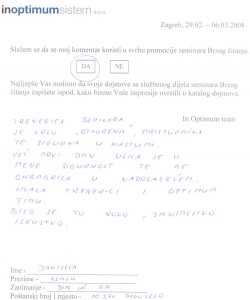 inoptimumsistem d.o.o.
Zagreb, 29.02. – 06.03.2008.
Slažem se da se moj komentar koristi u svrhu promocije seminara Brzog čitanja.
DA NE
Najljepše Vas molimo da svoje dojmove sa službenog dijela seminara Brzog
čitanja zapišete ispod, kako bismo Vaše impresije uvrstili u katalog dojmova.
In Optimum team
TRENERICA SEMINARA
JE VRLO OTVORENA, PRISTUPAČNA
TE SIGURNA U NASTUPU.
VEĆ PRVI DAN USELA JE U
MENE SIGURNOST TE ME
OHRABRILA U NADOLAZEĆEM.
HVALA TRENERICI I OPTIMUM
TIMU.
BILO JE TO NOVO, ZANIMLJIVO
ISKUSTVO.
Ime - DANIJELA
Prezime -
Zanimanje -
Poštanski broj i mjesto - 10 370 DUGO SELO